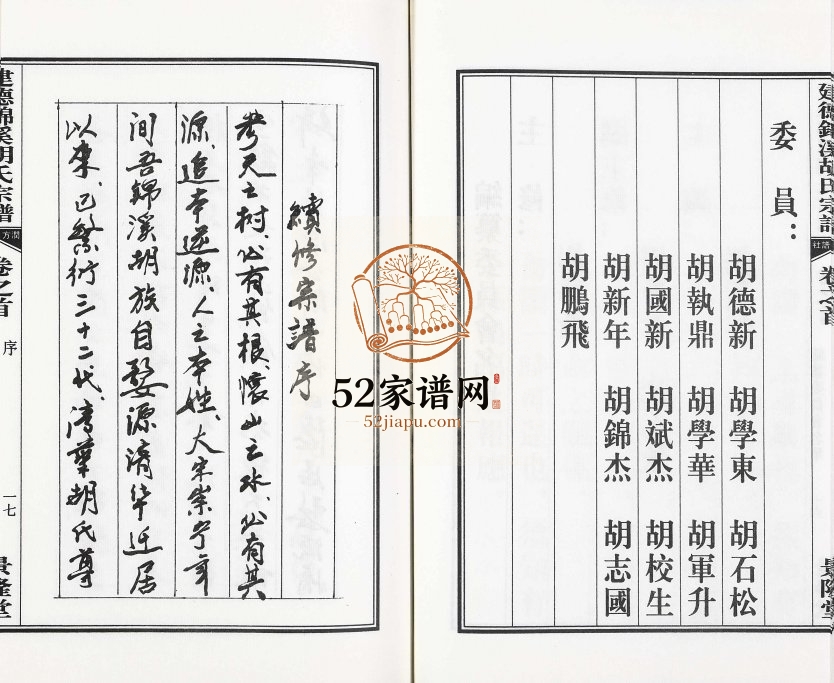 建德錦溪胡氏宗譜
卷之首
景隆堂
委員：
胡德新 胡學東 胡石松
胡執鼎 胡學華 胡軍升
胡國新 胡斌杰 胡校生
胡新年 胡錦杰 胡志國
胡鵬飛
續修宗譜序
考天之树、必有其根、懷山之水、必有其
源、追本逆源、人之本姓、大宋崇宁年
间吾錦溪胡族自婺源清华迁居
以來、已繁衍三十二代、清華胡氏尊
建德錦溪胡氏宗譜
卷之首
序
一七
景隆堂
52家谱网
52jiapu.com